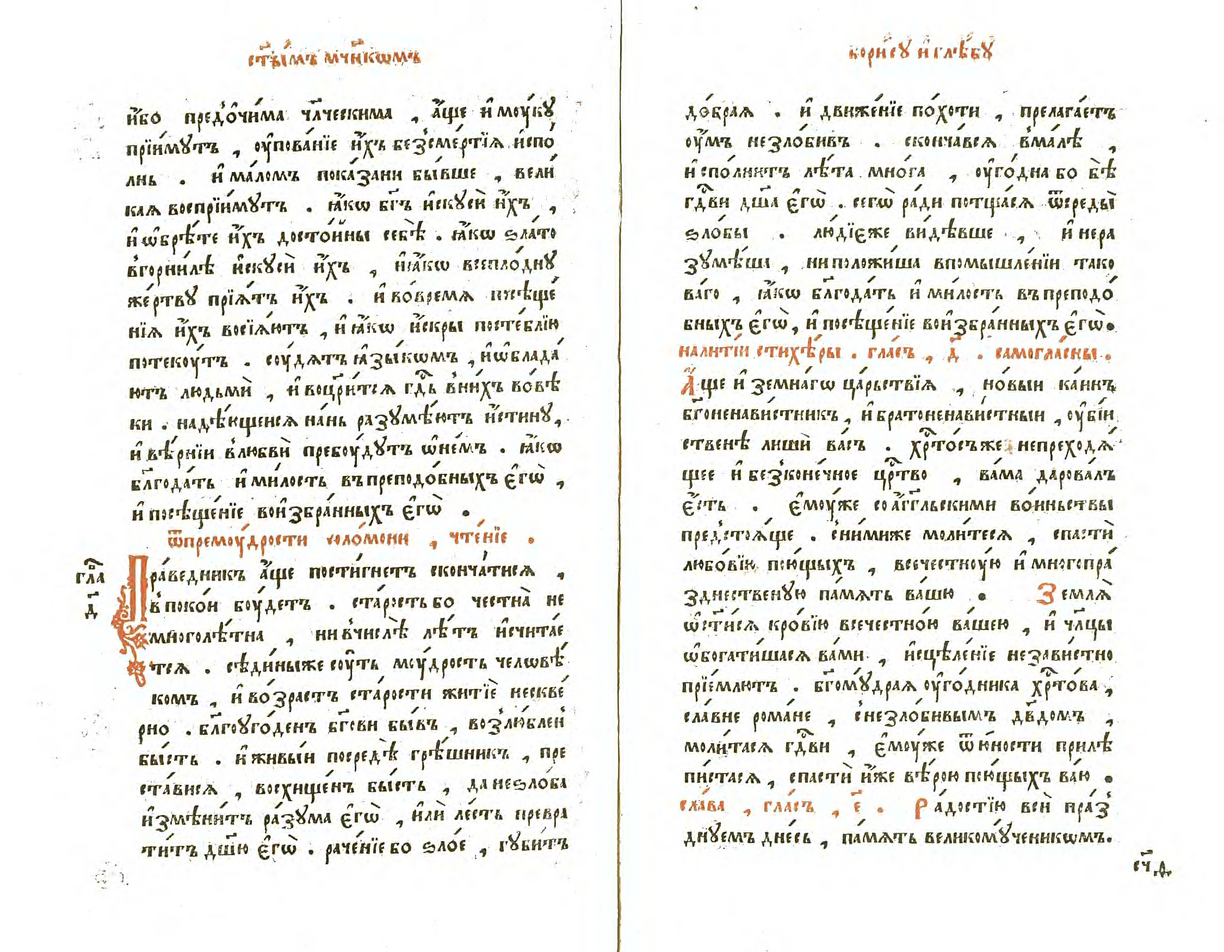 ст҃ы́мъ мч҃нкѡмъ
и҆́бо пред̾ѻчи́ма чл҃ческима , а҆́ще и҆ моу́кꙋ
прїи́мутъ , ѹ҆пова́нїе и҆́хъ безсме́ртїѧ и҆спо́
лнь . и҆ ма́ломъ пока́зани бы́вше , вели́
каѧ воспрїи́мутъ . ꙗ҆́кѡ бг҃ъ и҆скусѝ и҆̀хъ ,
и҆ ѡ҆брѣ́те и҆̀хъ досто́йны себѣ̀ . ꙗ҆́кѡ ѕла́то
вгорни́лѣ и҆скусѝ и҆̀хъ , и҆ ꙗ҆́кѡ всепло́днꙋ
же́ртвꙋ прїѧ́тъ и҆̀хъ . и҆ во́времѧ посѣще́
нїѧ и҆́хъ восїѧ́ютъ , и҆ ꙗ҆́кѡ и҆́скры постеблїю
потекоу́тъ . соу́дѧтъ ꙗ҆зы́кѡмъ , и҆ ѡ҆блада́
ютъ людьмѝ , и҆ воцр҃и́тсѧ гд҇ь вни́хъ во́вѣ
ки . надѣ́ющеисѧ на́нь разꙋмѣ́ютъ и҆́стинꙋ ,
и҆ вѣ́рнїи влюбвѝ пребоу́дутъ ѡ҆не́м . ꙗ҆́кѡ
блг҃ода́ть и҆ ми́лость въпреподо́бныхъ є҆гѡ̀ ,
и҆ посѣще́нїе вои҆збра́нныхъ є҆гѡ̀ .
ѿпремоу́дрости соломони , чте́нїе .
гла
д҃
Пра́ведникъ а҆́ще пости́гнетъ сконча́тисѧ ,
в̾поко́и боу́детъ . ста́рость бо честна̀ не
многолѣ́тна , ни вчислѣ̀ лѣ́тъ и҆счита́е
тсѧ . сѣ́дины же соу́ть моу́дрость человѣ́
комъ , и҆ во́зрастъ ста́рости житїѐ нескве́
рно . бл҃гоꙋго́денъ бг҃ови бы́въ , возлю́блен̾
бы́сть . и҆ живы́и посредѣ̀ грѣ́шникъ , пре
ста́висѧ , восхище́н бы́сть , да не ѕло́ба
и҆змѣни́тъ ра́зꙋма є҆гѡ̀ , и҆лѝ ле́сть превра
ти́тъ дш҃ю є҆гѡ̀ . раче́нїе бо ѕло́е , гꙋ́битъ
бори́сꙋ и҆ глѣ́бꙋ
до́браѧ . и҆ движе́нїе по́хоти , прелага́етъ
ѹ҆́мъ незло́бивъ . сконча́всѧ вма́лѣ ,
и҆спо́лнитъ лѣ́та мно́га , ѹ҆го́дна бо бѣ̀
гд҇ви дш҃а є҆гѡ̀ . сегѡ̀ ра́ди потща́сѧ ѿсреды̀
ѕло́бы . лю́дїє же ви́дѣвше , и҆ нера
зꙋмѣ́ша , ни положи́ша впомышле́нїи тако
ва́го , ꙗ҆́кѡ блг҃ода́ть и҆ ми́лость въпреподо́
бныхъ є҆гѡ̀ , и҆ посѣще́нїе вои҆збра́нныхъ є҆гѡ̀ .
налитїи́ стихѣ́ры . гла́съ , д҃ . самогла́сны .
А҆́ще и҆ земна́гѡ ца́рьствїѧ , но́выи ка́инъ
бг҃оненави́стникъ , и҆ братоненави́стныи , ѹ҆бі́и
ственѣ лишѝ ва́съ . хр҇то́съ же непреходѧ́
щее и҆ безконе́чное цр҇тво , ва́ма дарова́лъ
є҆́сть . є҆моу́же со а҆́гг҃льскими во́иньствы
предстоѧ́ще . сни́миже моли́тесѧ , спастѝ
любо́вїю пою́щыхъ , всечестноу́ю и҆ многопра́
зднественꙋю па́мѧть ва́шю . Землѧ̀
ѡ҆ст҃и́сѧ кро́вїю всечестно́ю ва́шею , и҆ чл҃цы
ѡ҆богати́шасѧ ва́ми , и҆сцѣле́нїе неза́вистно
прїе́млютъ . бг҃омꙋ́драѧ ѹ҆го́дника хр҇то́ва ,
сла́вне рома́не , с̾незло́бивымъ дв҃домъ ,
моли́тасѧ гд҇ви , є҆моу́же ѿ ю҆́ности прилѣ
пи́стасѧ , спастѝ и҆̀же вѣ́рою пою́щыхъ ва́ю .
сла́ва , гла́съ , є҃ . Ра́достїю всѝ пра́з̾
днꙋемъ дне́сь , па́мѧть великомꙋ́ченикѡмъ .
сч҃д